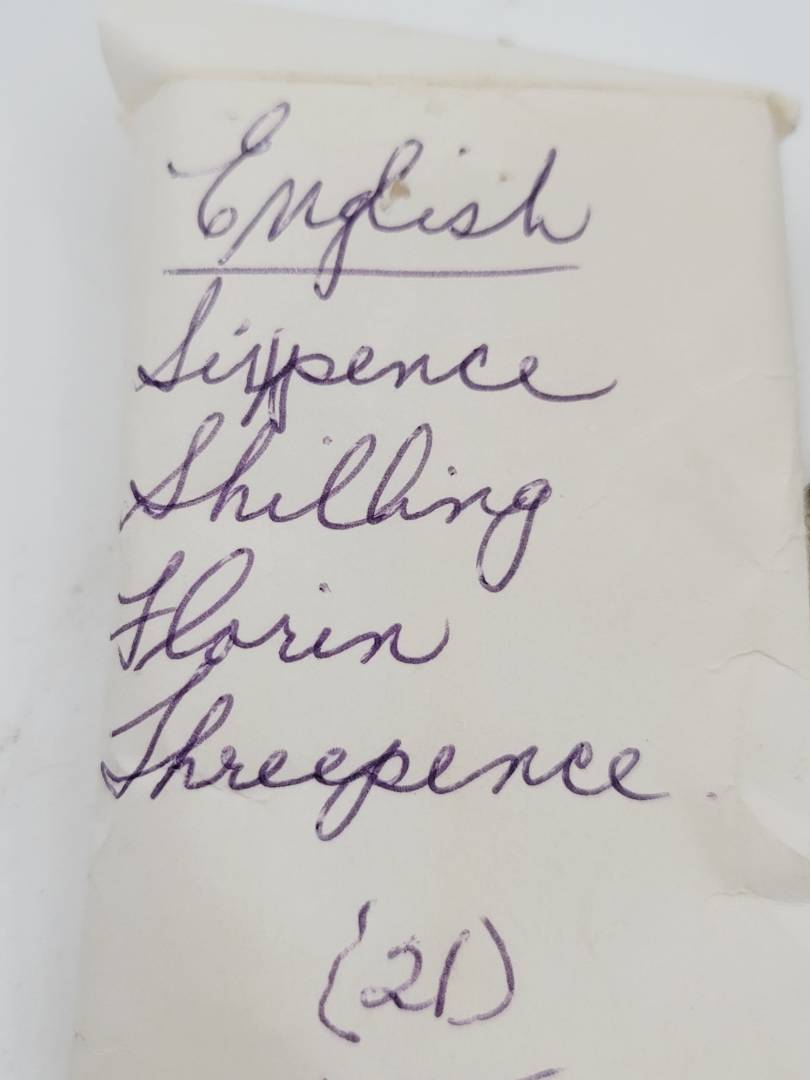 English
Sixpence
Shilling
Florin
Threepence
(21)